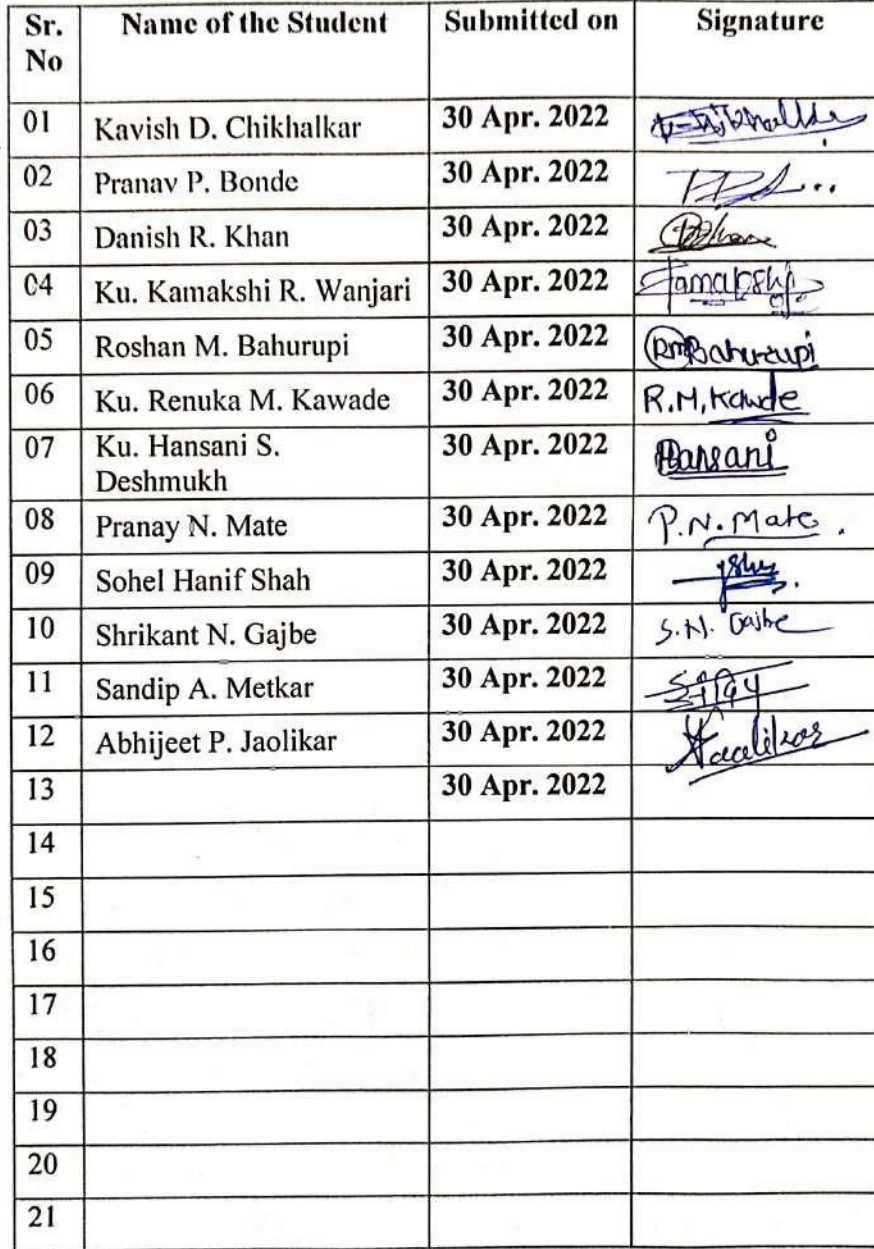 Sr. No Name of the Student Submitted on Signature
01 Kavish D. Chikhalkar 30 Apr. 2022
02 Pranav P. Bonde 30 Apr. 2022
03 Danish R. Khan 30 Apr. 2022
04 Ku. Kamakshi R. Wanjari 30 Apr. 2022 Kamakshi
05 Roshan M. Bahurupi 30 Apr. 2022 RMBahurupi
06 Ku. Renuka M. Kawade 30 Apr. 2022 R.M.Kawde
07 Ku. Hansani S. Deshmukh 30 Apr. 2022 Hansani
08 Pranay N. Mate 30 Apr. 2022 P.N. Mate.
09 Sohel Hanif Shah 30 Apr. 2022
10 Shrikant N. Gajbe 30 Apr. 2022 S.N. Gajbe
11 Sandip A. Metkar 30 Apr. 2022
12 Abhijeet P. Jaolikar 30 Apr. 2022 Jaolikar
13 30 Apr. 2022
14
15
16
17
18
19
20
21